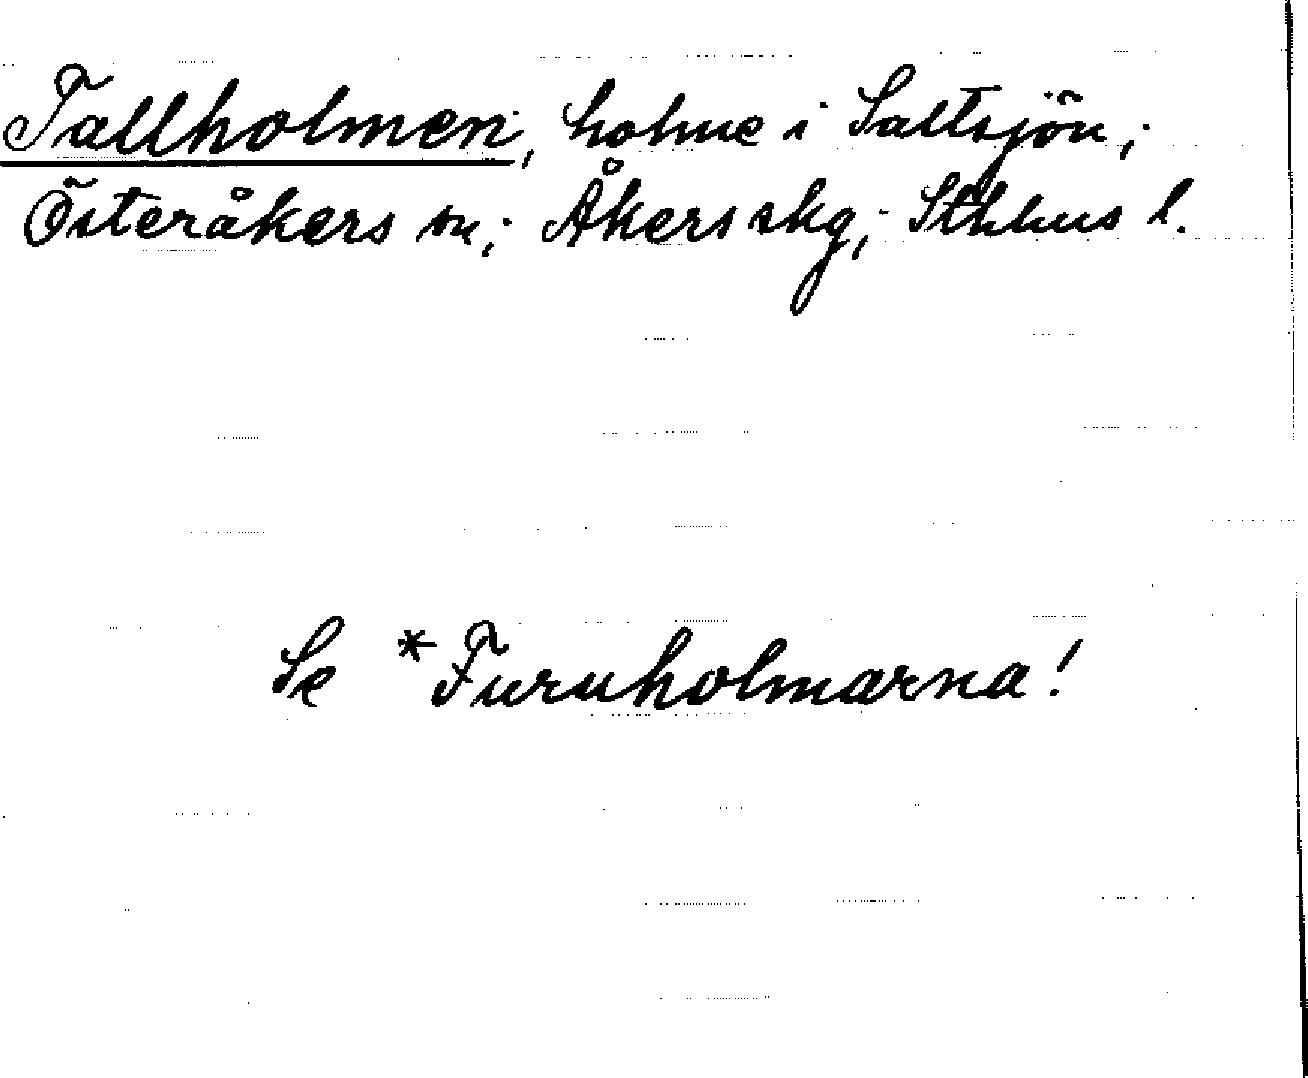 Tallholmen, holme i Saltsjön;
Österåkers sn; Åkers skg; Sthlms l.
Se *Furuholmarna!